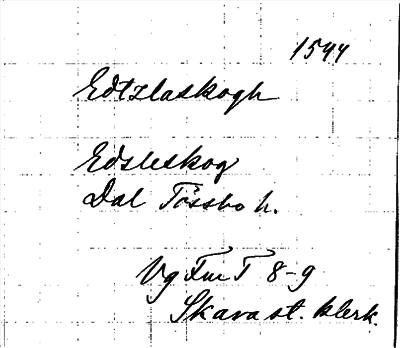 1544
Edtzlaskogh
Edsleskog
Dal Tössbo h.
Vg Fm T 8-9
Skara st. klerk.